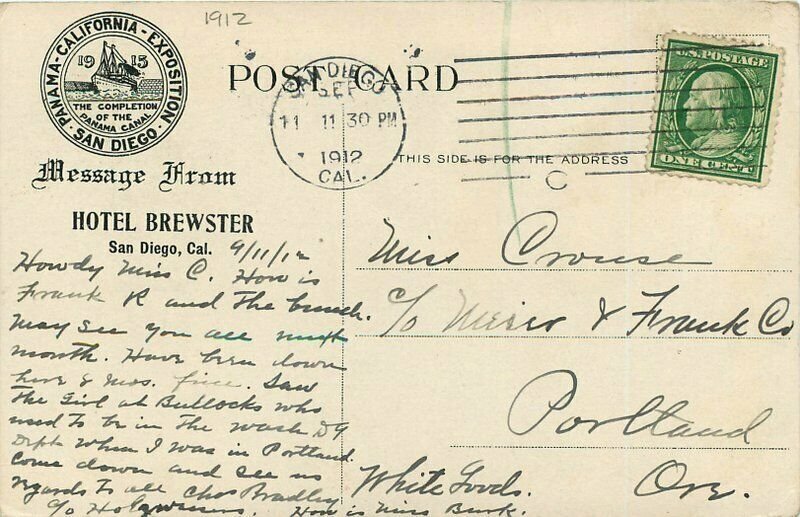 1912
PANAMA-CALIFORNIA-EXPOSITION
1915
THE COMPLETION
OF THE
PANAMA CANAL
SAN DIEGO
POST CARD
SAN DIEGO
SEP
11 11 30 PM
1912
CAL.
U.S. POSTAGE
ONE CENT
THIS SIDE IS FOR THE ADDRESS
C
Message From
HOTEL BREWSTER
San Diego, Cal. 9/11/12
Howdy Miss C. How is
Frank R and the bunch.
May see you all next
month. Have been down
here 8 mos. fine. Saw
the girl at Bullocks who
used to be in the Wash DG
Dept when I was in Portland.
Come down and see us
regards to all Chas Bradley
c/o
How is Miss Burk.
Miss Crouse
c/o Meier & Frank Co
Portland
White Goods. Ore.